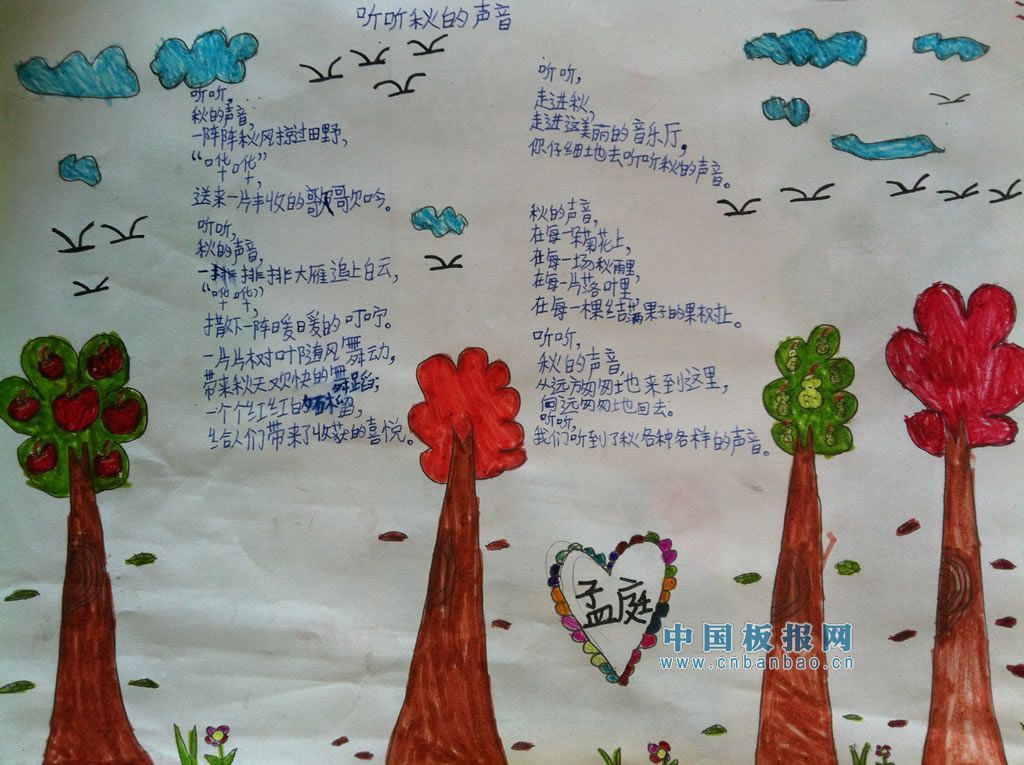 听听秋的声音
听听，
秋的声音，
一阵阵秋风掠过田野，
“哗哗”，
送来一片丰收的歌歌吟。
听听，
秋的声音，
一排排大雁追上白云，
“哗哗”，
撒下一阵暖暖的叮咛。
一片片树叶随风舞动，
带来秋天欢快的舞蹈；
一个个红红的石榴，
给人们带来了收获的喜悦。
听听，
走进秋，
走进这美丽的音乐厅，
你仔细地去听听秋的声音。
秋的声音，
在每一朵菊花上，
在每一场秋雨里，
在每一片落叶里，
在每一棵结满果子的果树上。
听听，
秋的声音，
从远方匆匆地来到这里，
向远匆匆地回去。
听听，
我们听到了秋各种各样的声音。
孟庭
中国板报网
www.cnbanbao.cn